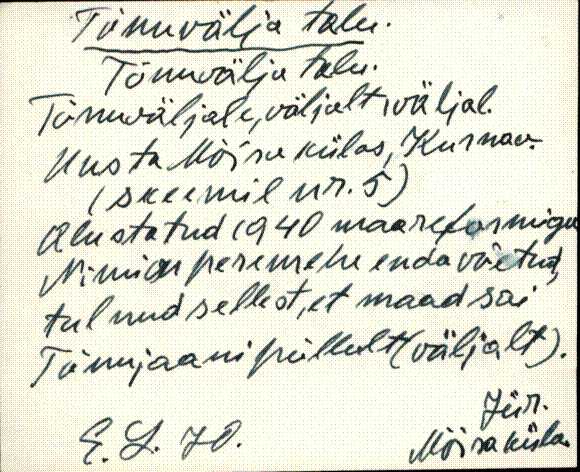 Tõnuvälja talu.
Tõnuvälja talu.
Tõnuväljale, väljalt, väljal.
Uusta Mõisa külas, Kurnav.
(skeemil nr. 5)
Alustatud 1940 maareformiga
Nimi on peremehe enda võetud,
tulnud sellest, et maad sai
Tõnujaani põllult (väljalt).
Jür.
E. L. 70. Mõisaküla